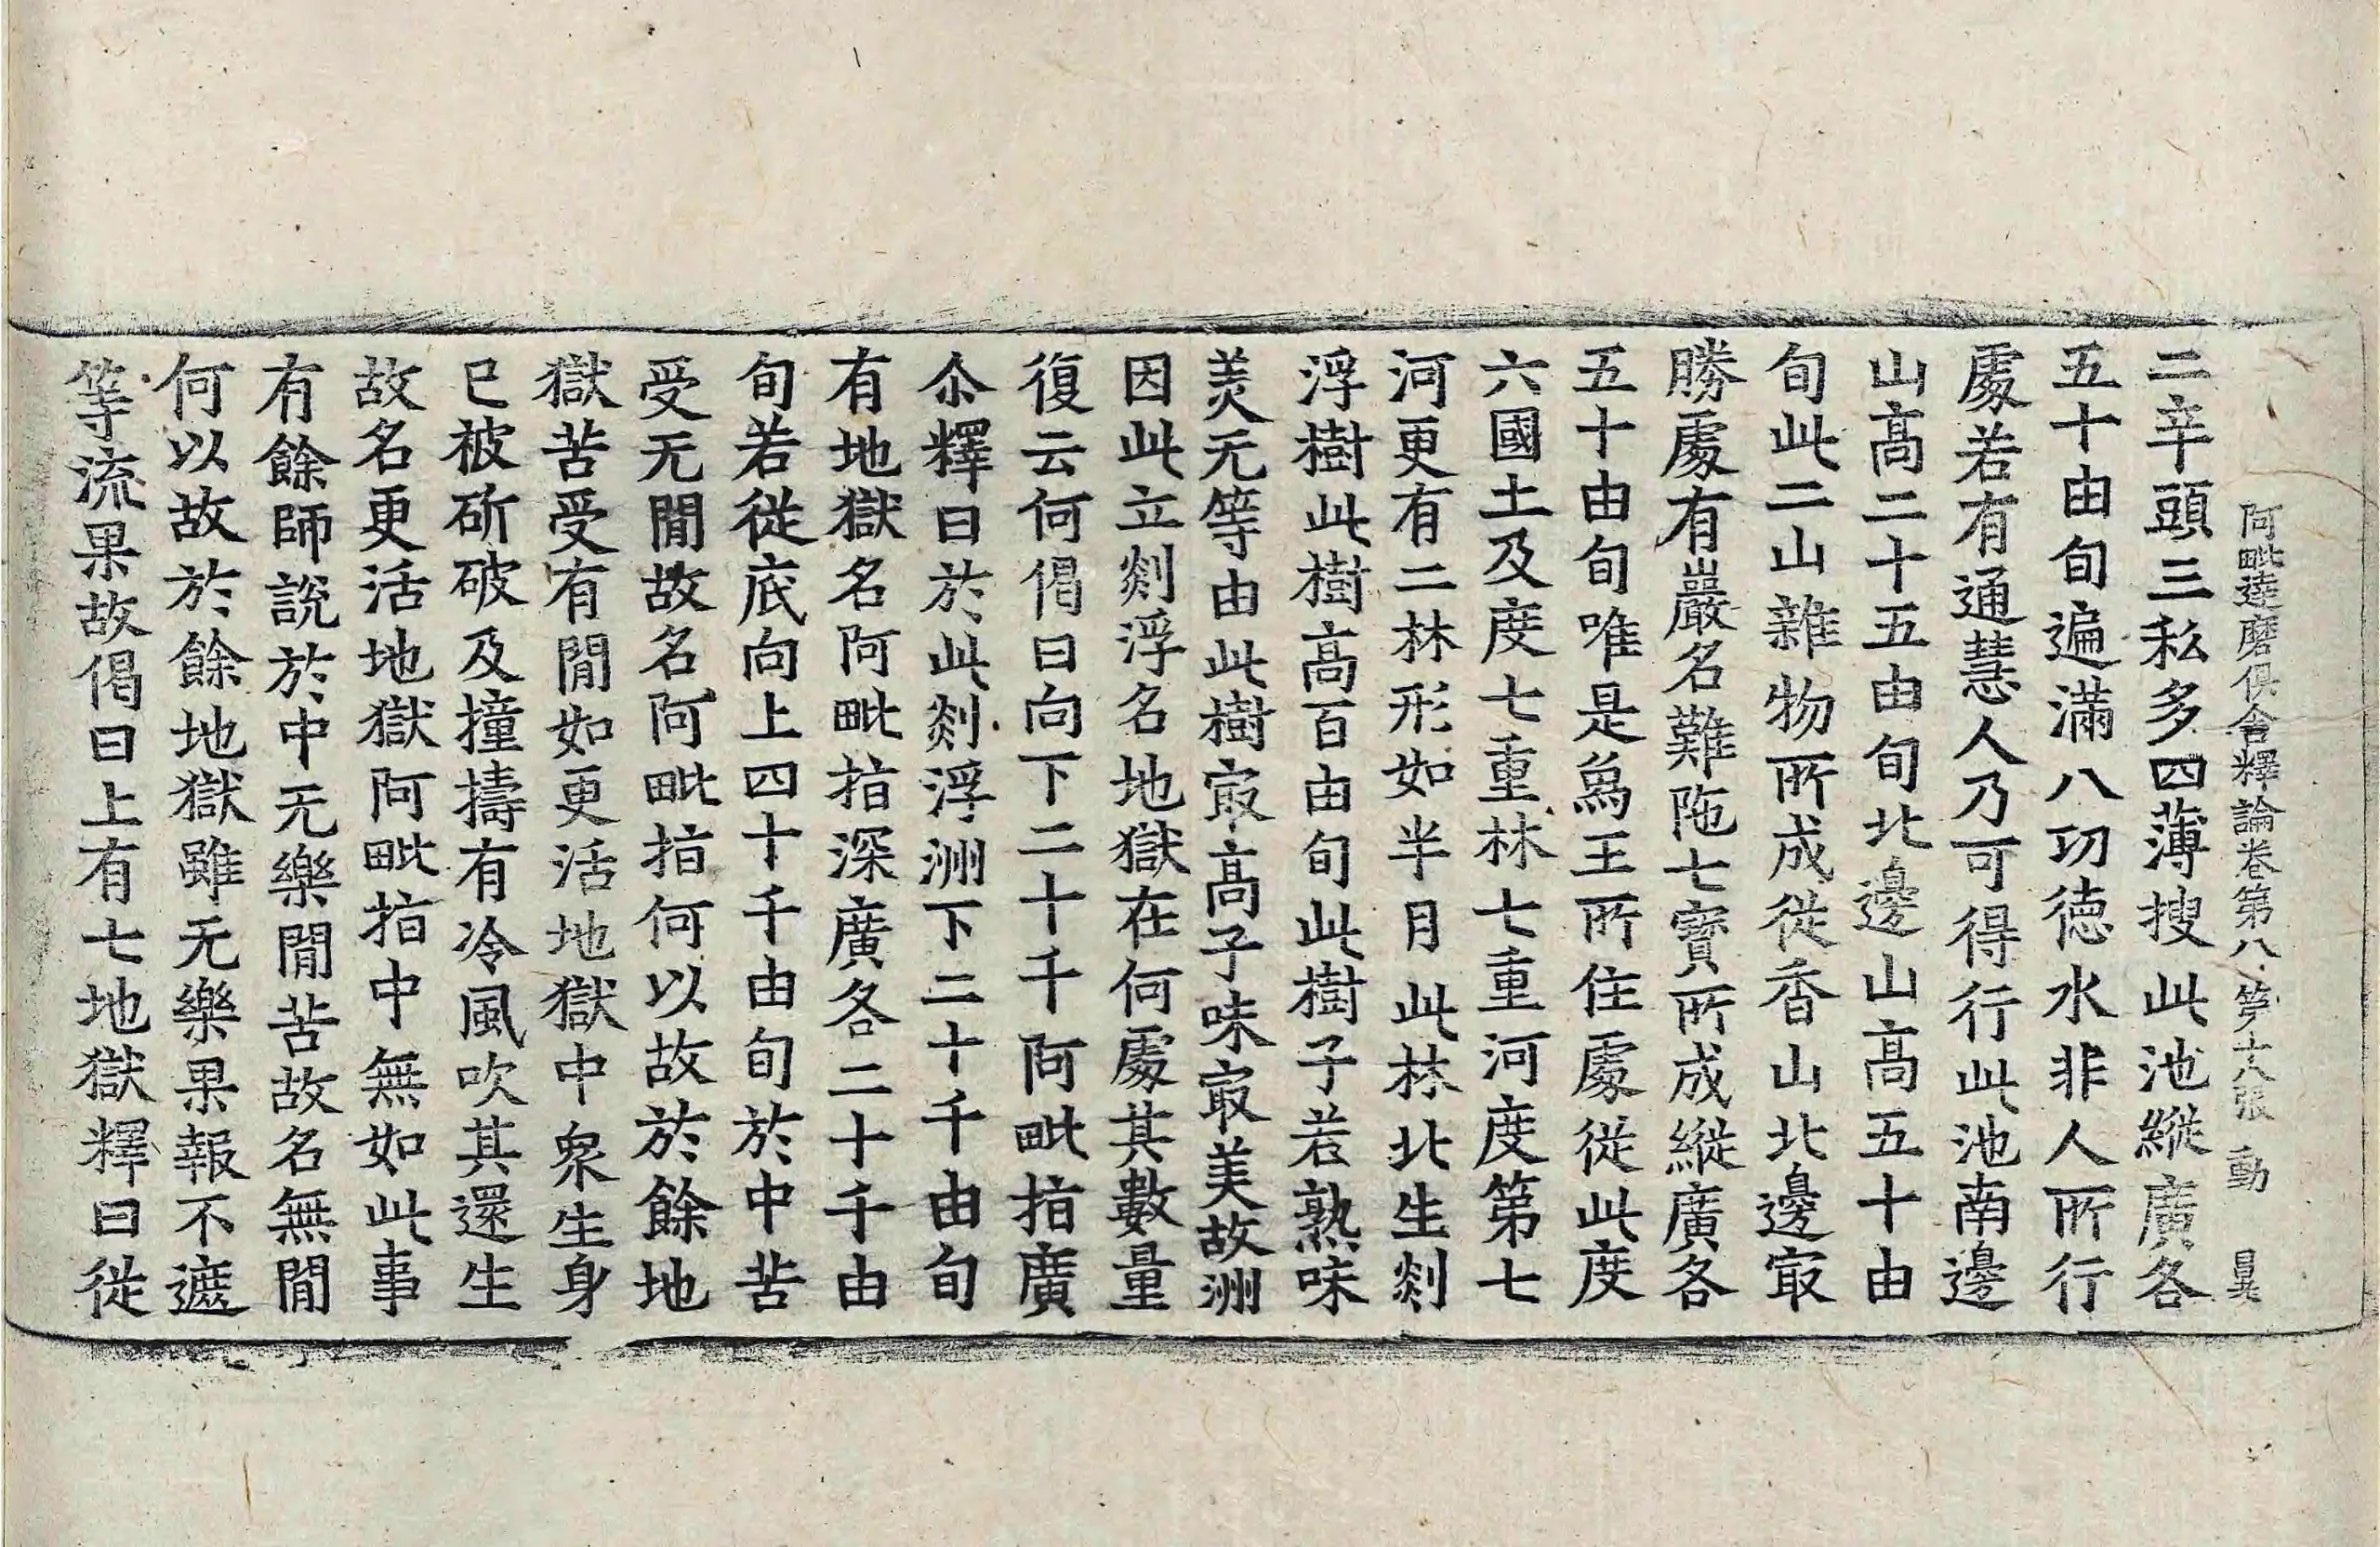 阿毗達磨俱舍釋論卷第八 第十八張 動
二辛頭三私多四薄搜此池縱廣各
五十由旬遍滿八功德水非人所行
處若有通慧人乃可得行此池南邊
山高二十五由旬北邊山高五十由
旬此二山雜物所成從香山北邊㝡
勝處有巖名難陁七寶所成縱廣各
五十由旬唯是爲王所住處從此度
六國土及度七重林七重河度第七
河更有二林形如半月此林北生剡
浮樹此樹高百由旬此樹子若熟味
美无等由此樹㝡高子味㝡美故洲
因此立剡浮名地獄在何處其數量
復云何偈曰向下二十千阿毗指廣
尒釋曰於此剡浮洲下二十千由旬
有地獄名阿毗指深廣各二十千由
旬若從底向上四十千由旬於中苦
受无間故名阿毗指何以故於餘地
獄苦受有間如更活地獄中衆生身
已被斫破及撞擣有冷風吹其還生
故名更活地獄阿毗指中無如此事
有餘師說於中无樂間苦故名無間
何以故於餘地獄雖无樂果報不遮
等流果故偈曰上有七地獄釋曰從